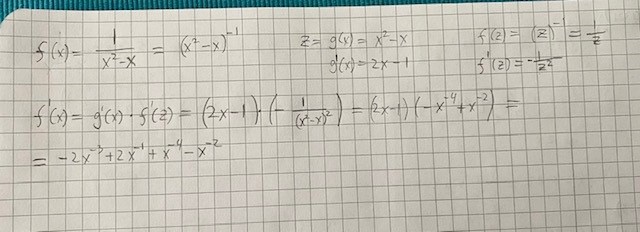 f(x) = 1/(x²-x) = (x²-x)⁻¹   z = g(x) = x²-x   f(z) = (z)⁻¹ = 1/z
g'(x) = 2x-1   f'(z) = -1/z²
f'(x) = g'(x) · f'(z) = (2x-1) · (-1/(x²-x)²) = (2x-1)(-x⁻⁴+x⁻²) =
= -2x⁻³+2x⁻¹+x⁻⁴-x⁻²